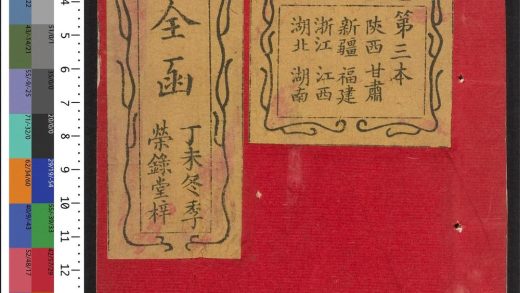 第三本
陝西 甘肅
新疆 福建
浙江 江西
湖北 湖南
全函
丁未冬季
榮錄堂梓
5
6
7
8
9
10
11
12